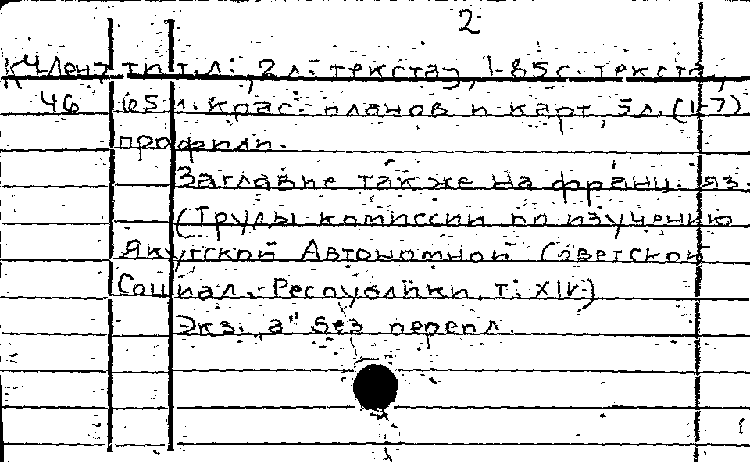 2
К4Лент тит.л., 2 л. текста, 1-85 с. текста,
46 65 л. крас. планов и карт, 5 л. (1-7)
профили.
Заглавие также на франц. яз.
(Труды комиссии по изучению
Якутской Автономной Советской
Социал. Республики, т. XIV)
Экз. „а" без перепл.